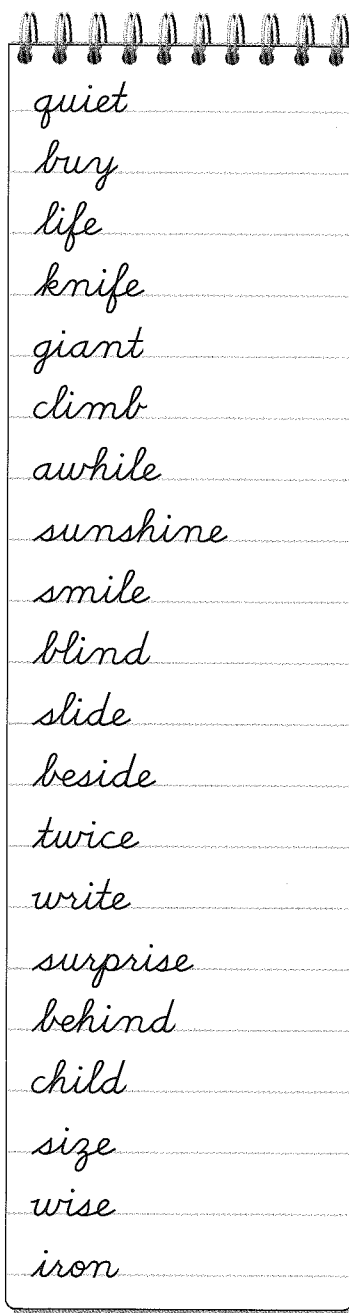 quiet
buy
life
knife
giant
climb
awhile
sunshine
smile
blind
slide
beside
twice
write
surprise
behind
child
size
wise
iron